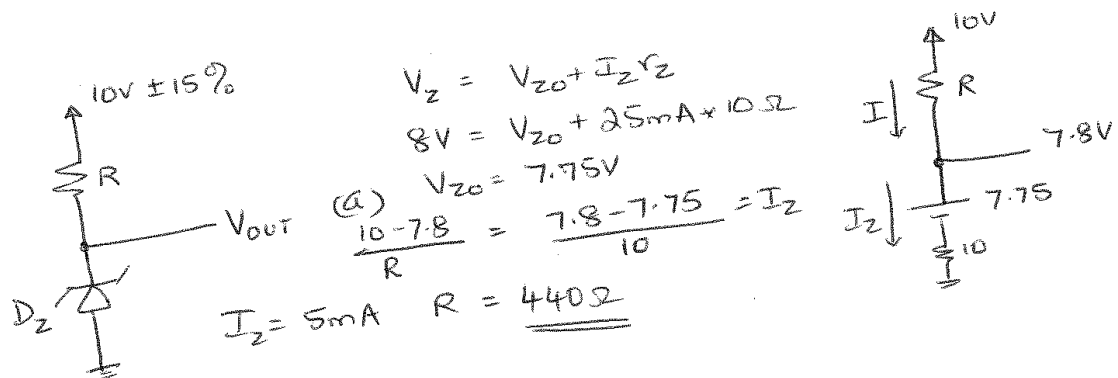 10V ± 15%
R
V_OUT
D_Z
V_Z = V_Z0 + I_Z r_Z
8V = V_Z0 + 25mA * 10 Ω
V_Z0 = 7.75V
(a)
10-7.8 / R = 7.8-7.75 / 10 = I_Z
I_Z = 5mA R = 440Ω
10V
I
R
7.8V
I_Z
7.75
10